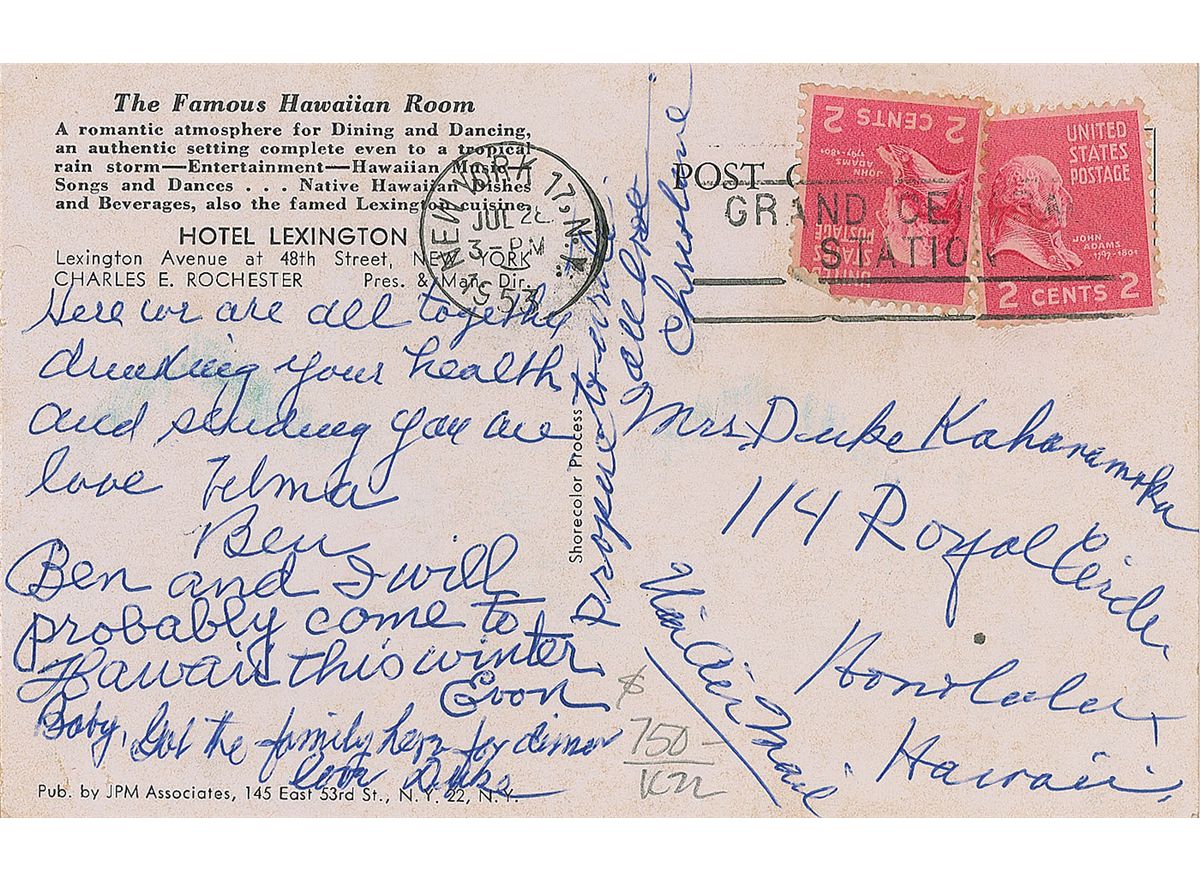 The Famous Hawaiian Room
A romantic atmosphere for Dining and Dancing,
an authentic setting complete even to a tropical
rain storm—Entertainment—Hawaiian Music—
Songs and Dances . . . Native Hawaiian Dishes
and Beverages, also the famed Lexington cuisine.
HOTEL LEXINGTON
Lexington Avenue at 48th Street, NEW YORK
CHARLES E. ROCHESTER Pres. & Man. Dir.
Here we are all together
drinking your health
and sending you
love Velma
Ben
Ben and I will
probably come to
Hawaii this winter
Evon
Baby, Got the family here for dinner
love Duke
Pub. by JPM Associates, 145 East 53rd St., N. Y. 22, N. Y.
Shorecolor Process
to write
all love
POST
NEW YORK 17, N.Y.
JUL 28
3-PM
1953
GRAND CENTRAL
STATION
2 CENTS 2
JOHN ADAMS
1797-1801
UNITED STATES POSTAGE
UNITED
STATES
POSTAGE
JOHN
ADAMS
1797-1801
2 CENTS 2
Mrs. Duke Kahanamoku
114 Royal Circle
Honolulu
Hawaii
Via Air Mail
$
750-